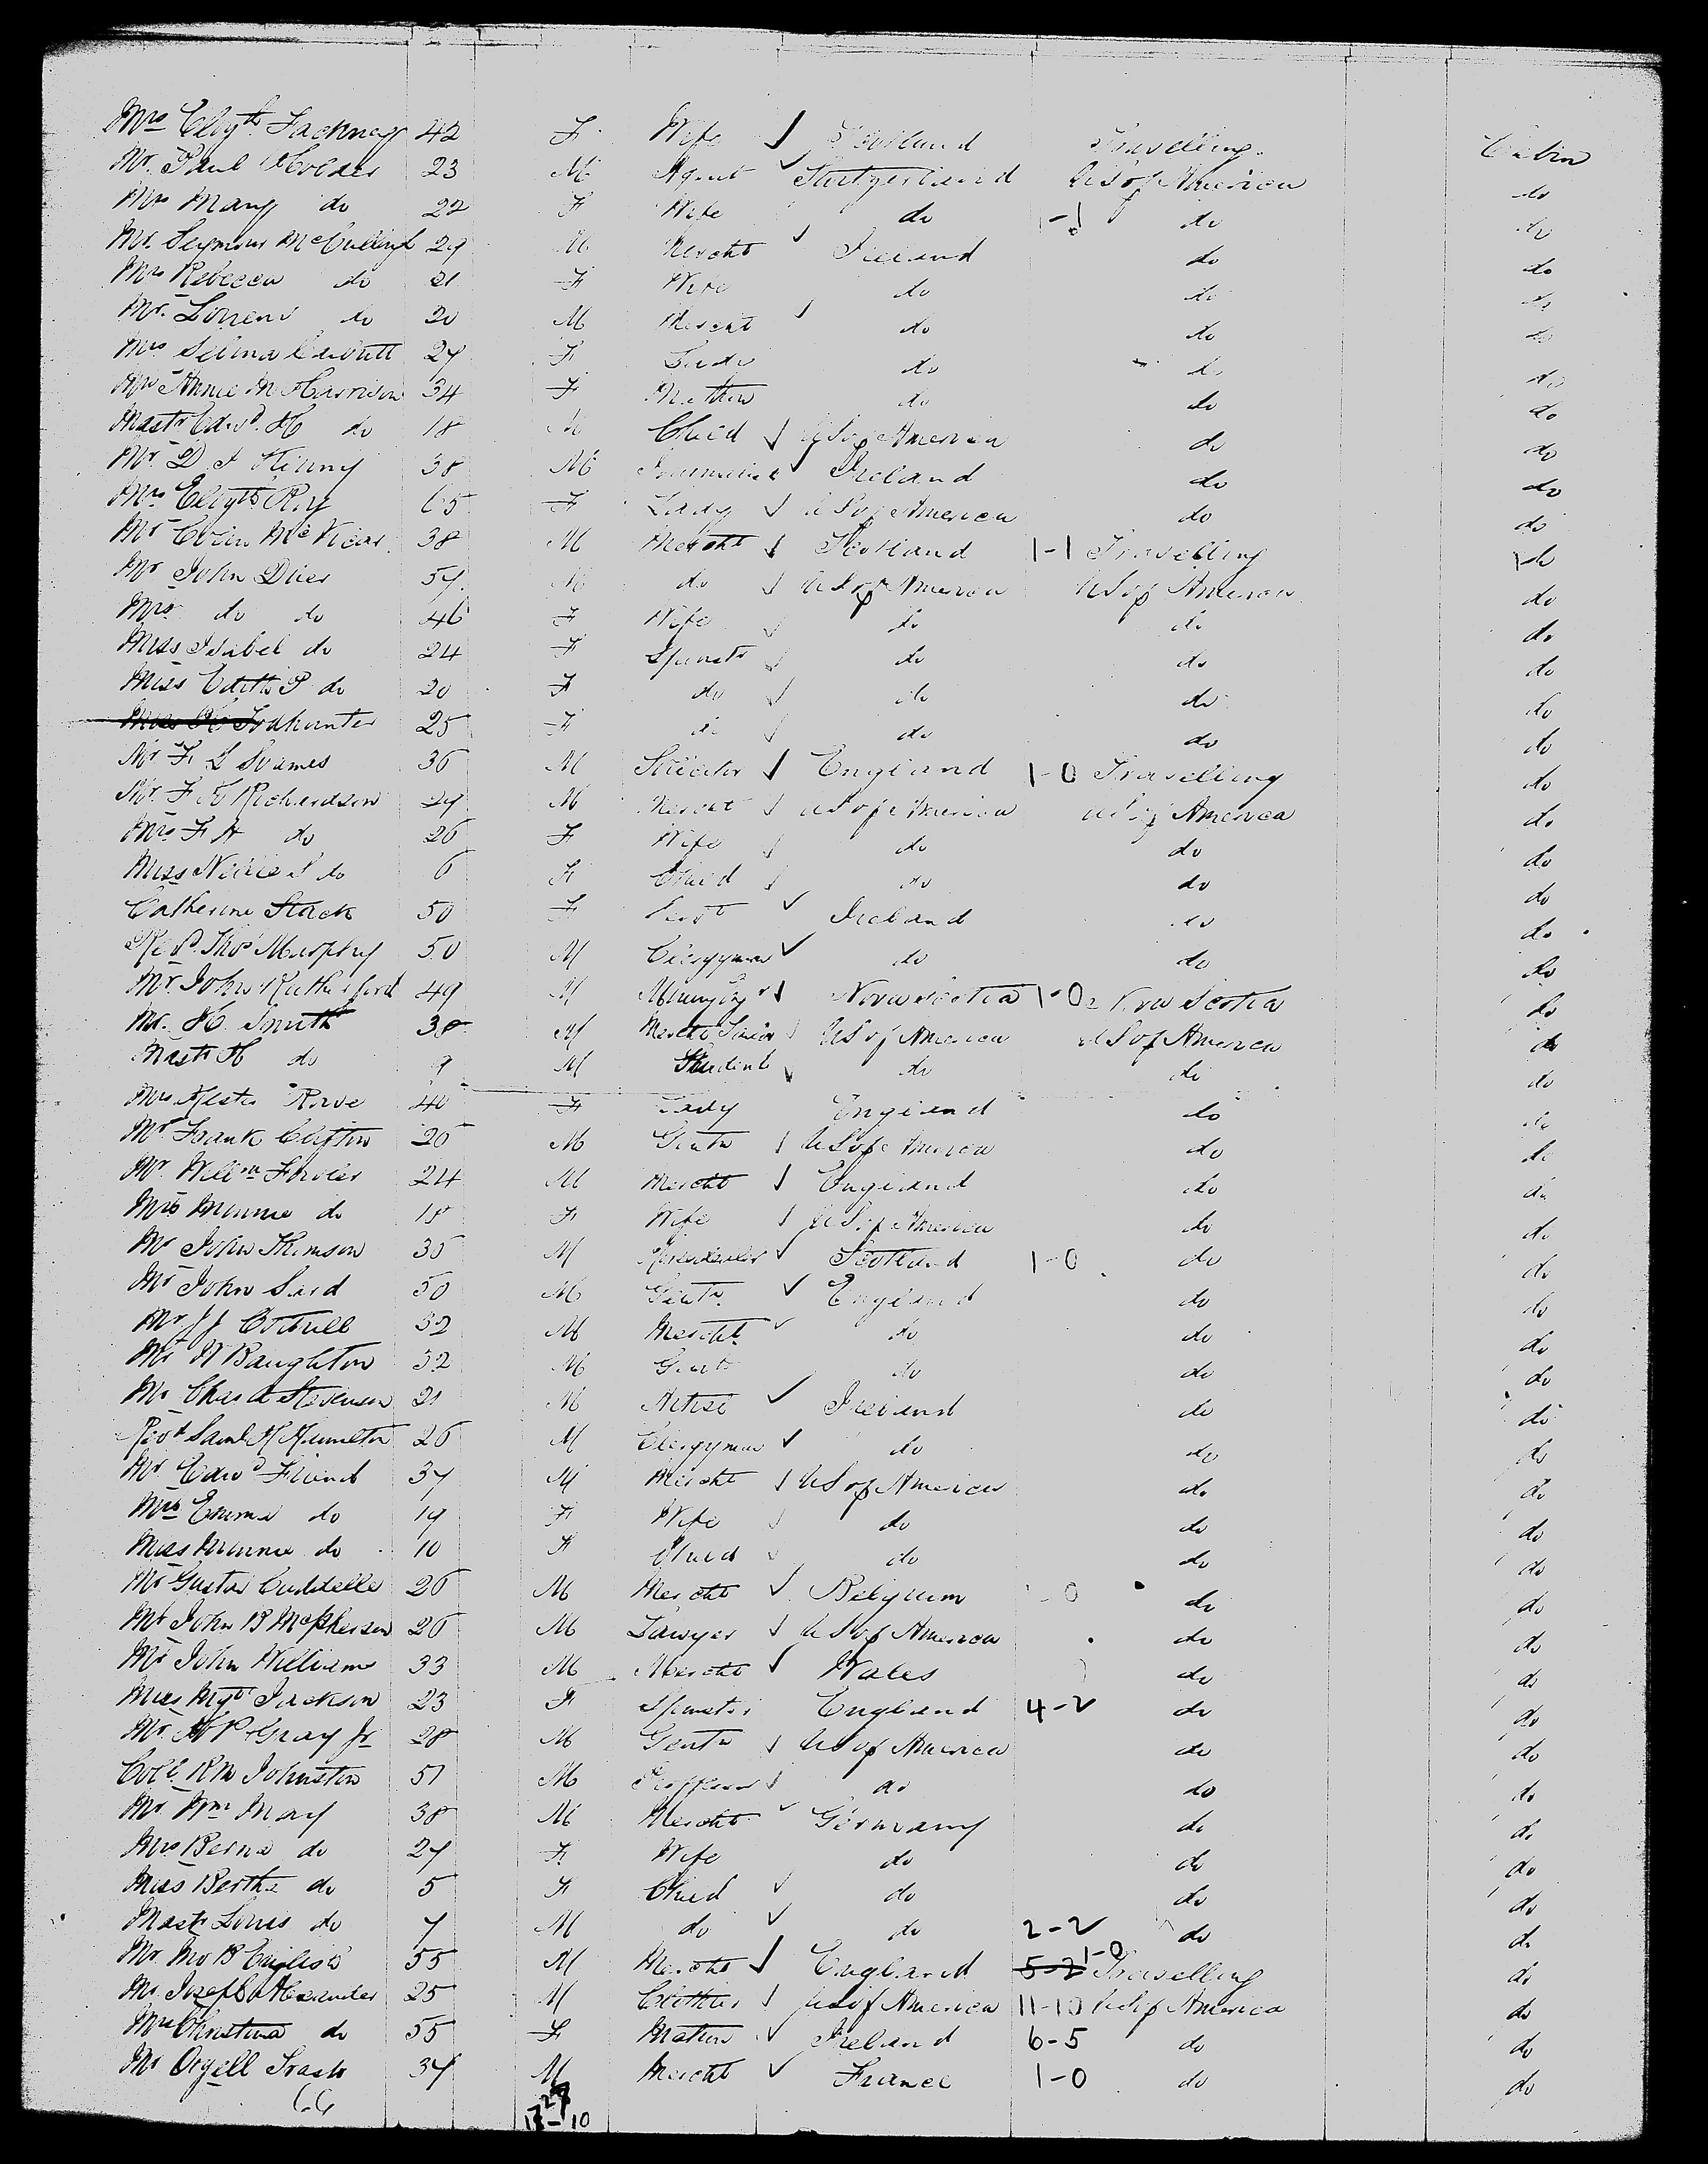 Mrs Elizth Jackney 42 F Wife Scotland Travelling Cabin
Mr. Paul Holder 23 M Agent Switzerland US of America do
Mrs Mary do 22 F Wife do 1-1 do do
Mr. Seymour McCullogh 29 M Mercht Ireland do do
Mrs Rebecca do 21 F Wife do do do
Mr. Lorrens do 20 M Mercht do do do
Mrs Selina 27 F Lady do do do
Mrs Annie M Harrison 34 F Matron do do do
Mastr Edwd. H do 18 M Child US of America do do
Mr. D J Kinny 38 M Journalist Ireland do do
Mrs Elizth Ry 65 F Lady US of America do do
Mr Colin McVicar 38 M Mercht Scotland 1-1 Travelling do
Mr John Dier 57 M do US of America US of America do
Mrs do do 46 F Wife do do do
Miss Isabel do 24 F Spinstr do do do
Miss Edith P do 20 F do do do do
Todhunter 25 F do do do do
Mr F. L Soames 36 M Solicitor England 1-0 Travelling do
Mr. F H Richardson 29 M Mercht US of America US of America do
Mrs F H do 26 F Wife do do do
Miss Nellie S do 6 F Child do do do
Catherine Stack 50 F Servt Ireland do do
Revd. Thos Murphy 50 M Clergyman do do do
Mr. John Rutherford 49 M Mining Engr Nova Scotia 1-0 Nova Scotia do
Mr. H. Smith 38 M Mercht Tailor US of America US of America do
Mastr H do 9 M Student do do do
Mrs Hester Rowe 40 F Lady England do do
Mr Frank Clifton 26 M Gentn US of America do do
Mr Willm Fowler 24 M Mercht England do do
Mrs Minnie do 18 F Wife US of America do do
Mr John Thomson 35 M Scotland 1-0 do do
Mr John Sard 50 M Gentn. England do do
Mr J J Cottrell 32 M Mercht do do do
Mr W Baughton 32 M Gentn do do do
Mr Chas A Stevenson 21 M Artist Ireland do do
Revd Saml H Hamilton 26 M Clergyman do do do
Mr Edwd Friend 37 M Mercht US of America do do
Mrs Emma do 19 F Wife do do do
Miss Minnie do 10 F Child do do do
Mr Gustav 26 M Mercht Belgium 0 do do
Mr John B McPherson 26 M Lawyer US of America do do
Mr John Williams 33 M Mercht Wales do do
Miss Mgt Jackson 23 F Spinster England 4-2 do do
Mr. H P Gray Jr 28 M Gentn US of America do do
Coll. RM Johnston 51 M Proffessor do do do
Mr. Wm May 38 M Mercht Germany do do
Mrs Berna do 27 F Wife do do do
Miss Bertha do 5 F Child do do do
Mastr Louis do 7 M do do 2-2 do do
Mr. Jno B English 55 M Mercht England 5-2 1-0 Travelling do
Mr. Joseph Alexander 25 M Clothier US of America 11-10 US of America do
Mrs Christina do 55 F Matron Ireland 6-5 do do
Mr Orgell Trash 34 M Mercht France 1-0 do do
66